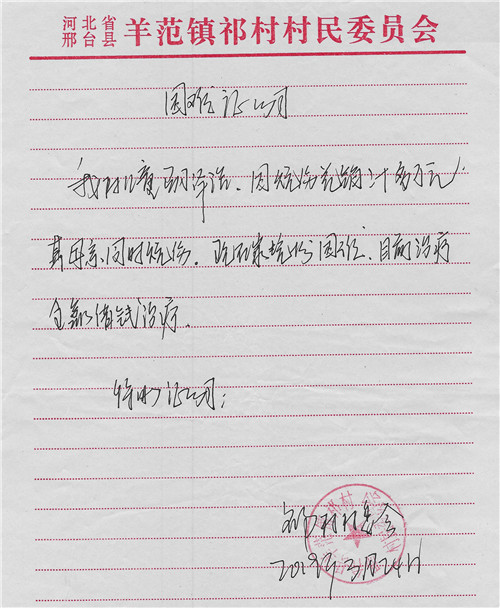 河北省
邢台县
羊范镇祁村村民委员会
困难证明
我村儿童泽浩、因烧伤花销二十多万元,
其母亲同时烧伤。现在家境十分困难、目前治疗
全靠借钱治疗。
特此证明:
祁村村委会
2019年3月24日